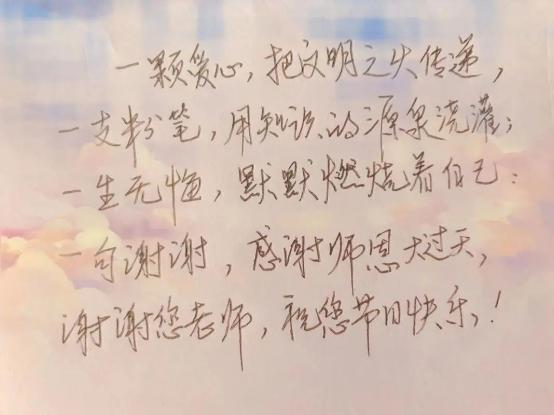 一颗爱心，把文明之火传递，
一支粉笔，用知识的源泉浇灌；
一生无悔，默默燃烧着自己：
一句谢谢，感谢师恩大过天，
谢谢您老师，祝您节日快乐！